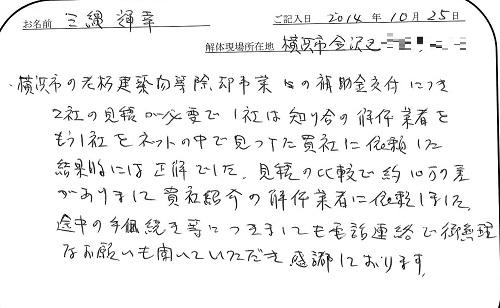 お名前 三縄 輝幸 ご記入日 2014 年 10 月 25 日
解体現場所在地 横浜市金沢区
・横浜市の老朽建築物等除却事業 の補助金交付につき
2社の見積が必要で1社は知り合の解体業者を
もう1社をネットの中で見つけた貴社に依頼した
結果的には正解でした。見積の比較で約10万の差
がありまして貴社紹介の解体業者に依頼しました。
途中の手続き等につきましても電話連絡で御無理
なお願いも聞いていただき感謝しております。